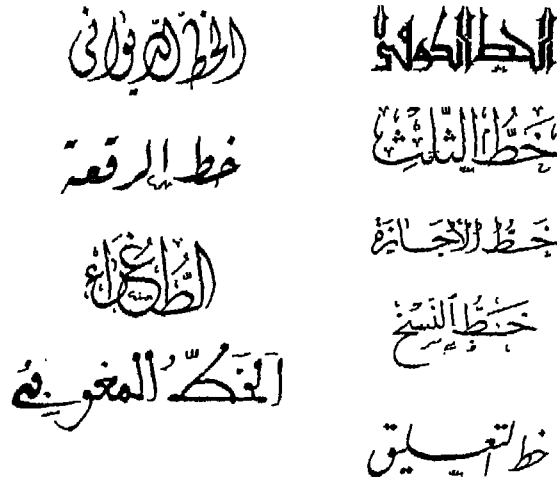 الخط الكوفي
خَطُّ الثُّلُثِ
خَطُّ الإجَازَة
خَطُّ النَّسْخ
خط التعليق
الخط الديواني
خط الرقعة
الطُّغراء
الخط المغربي